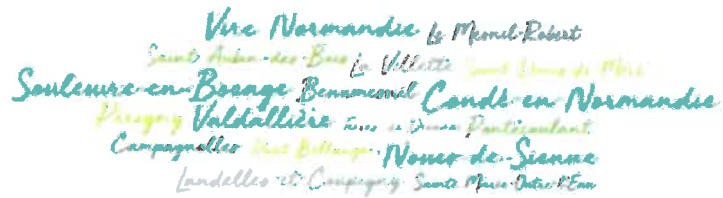 Vire Normandie Le Mesnil-Robert
Saint-Aubin-des-Bois La Villette Saint Denis de Méré
Souleuvre-en-Bocage Beaumesnil Condé-en-Normandie
Périgny Valdallière Pontécoulant
Campagnolles Noues de Sienne
Landelles et Coupigny Sainte Marie-Outre-l'Eau